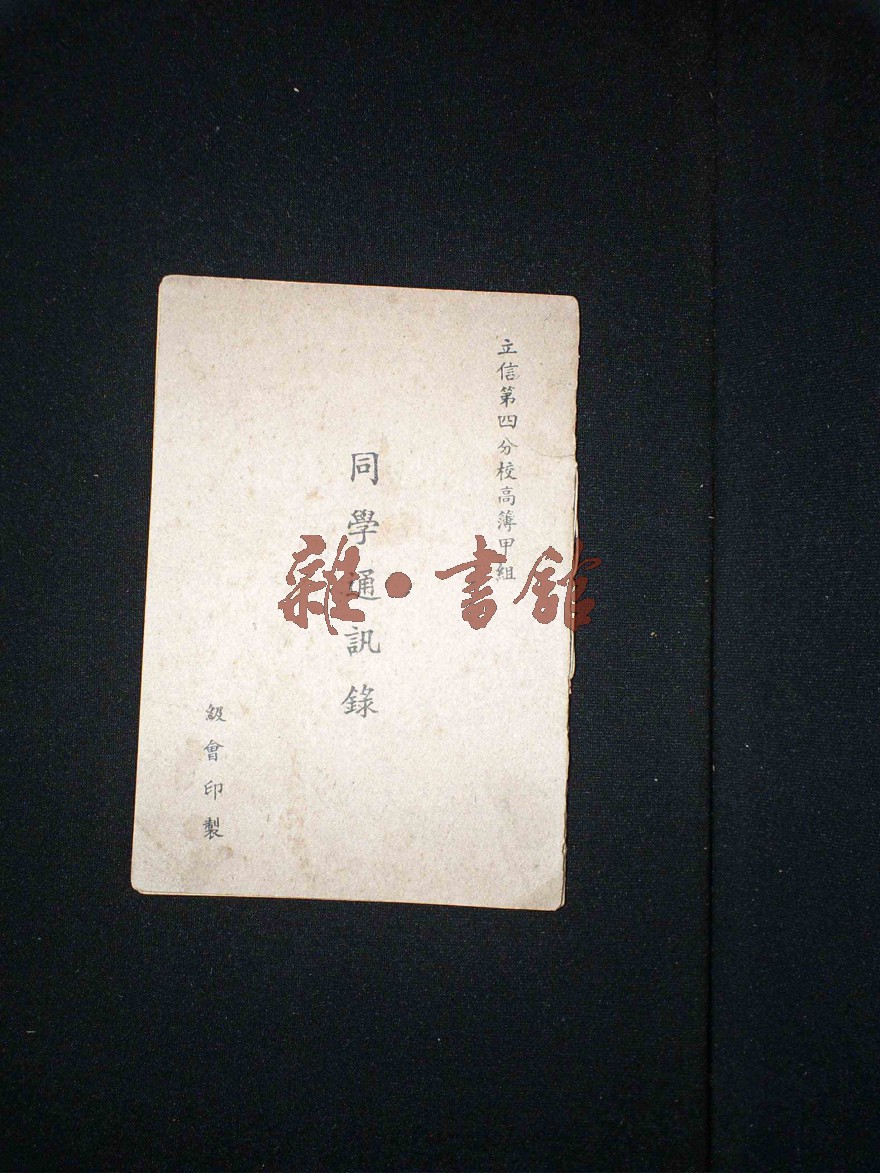 立信第四分校高簿甲組
同學通訊錄
級會印製
雜·書館